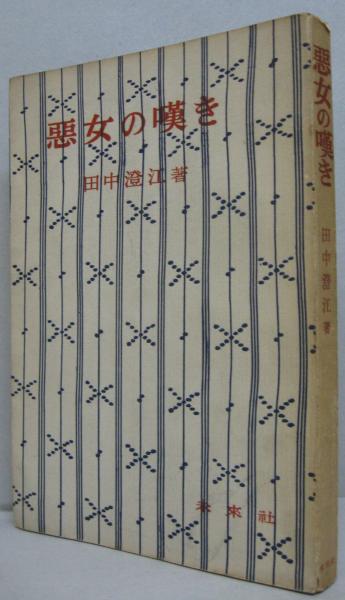 悪女の嘆き
田中澄江著
未來社
悪女の嘆き
田中澄江著